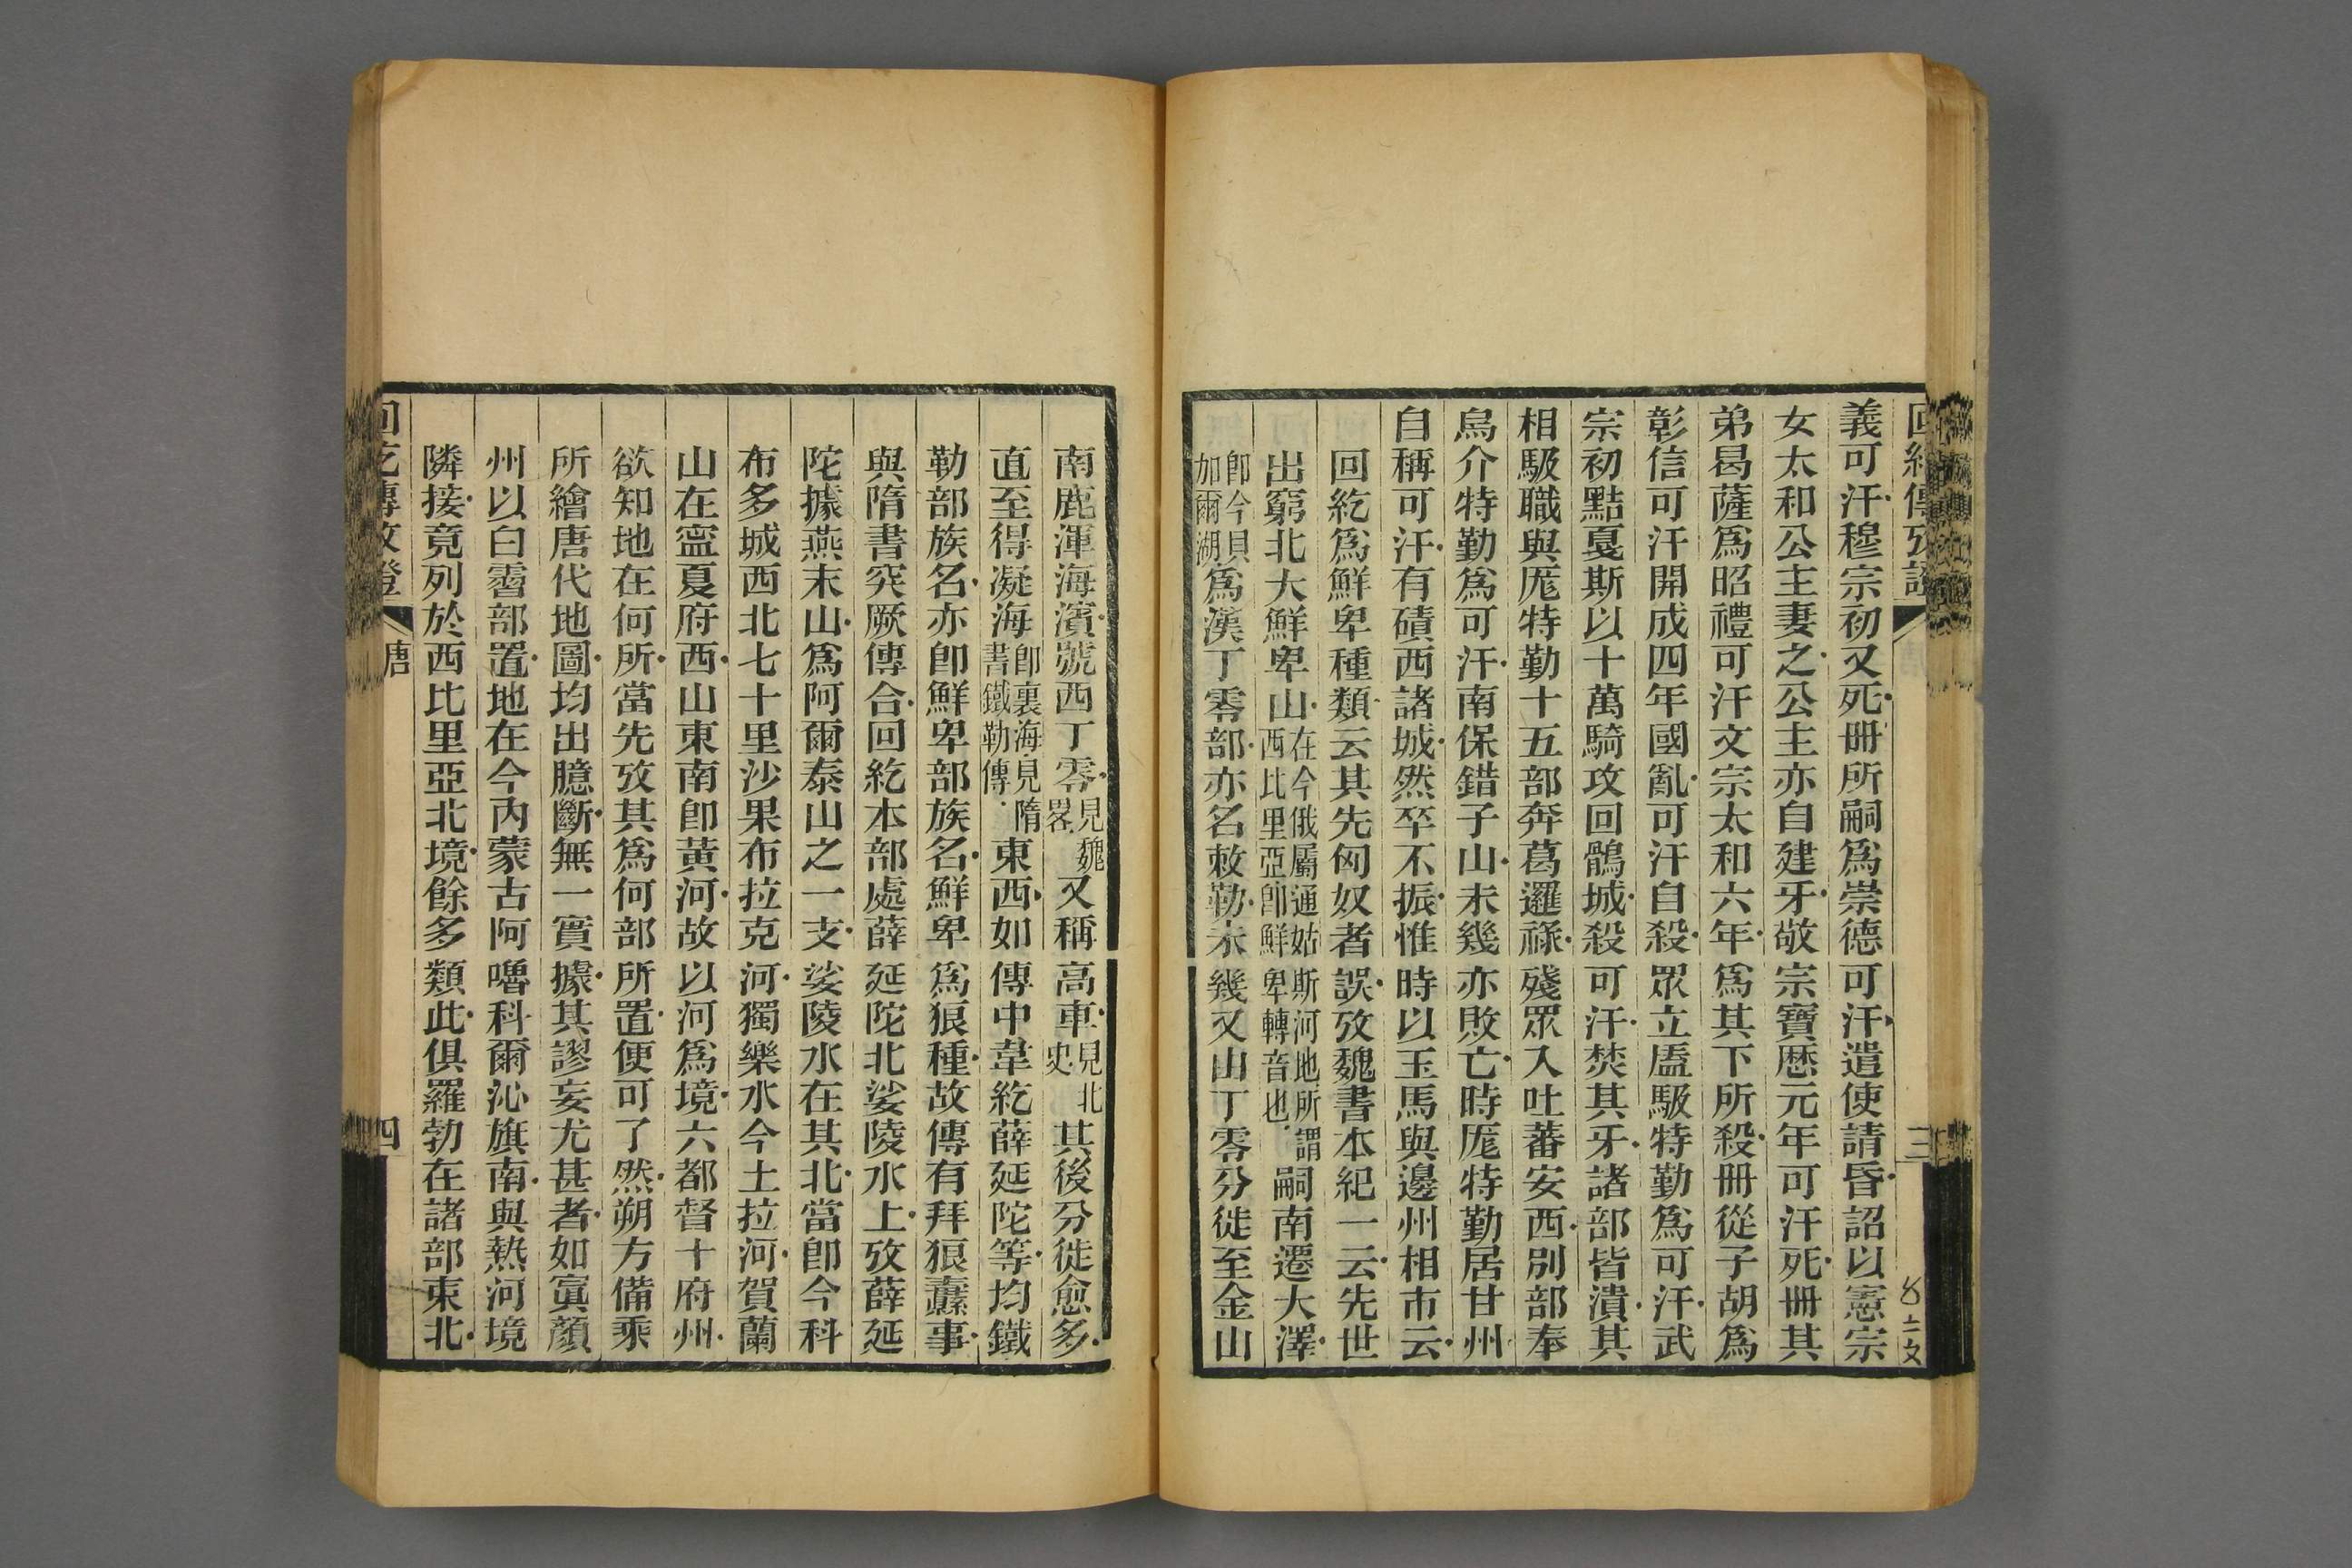 回紇傳攷證
三
义可汗穆宗初又死册所嗣爲崇德可汗遣使請昏詔以憲宗
女太和公主妻之公主亦自建牙敬宗寶歷元年可汗死册其
弟曷薩爲昭禮可汗文宗太和六年爲其下所殺册從子胡爲
彰信可汗開成四年國亂可汗自殺眾立㕎馺特勤爲可汗武
宗初黠戛斯以十萬騎攻回鶻城殺可汗焚其牙諸部皆潰其
相馺職與厖特勤十五部奔葛邏祿殘眾入吐蕃安西別部奉
烏介特勤爲可汗南保錯子山未幾亦敗亡時厖特勤居甘州
自稱可汗有磧西諸城然卒不振惟時以玉馬與邊州相市云
回紇爲鮮卑種類云其先匈奴者誤攷魏書本紀一云先世
出窮北大鮮卑山在今俄屬通姑斯河地所謂西比里亞卽鮮卑轉音也嗣南遷大澤
卽今貝加爾湖爲漢丁零部亦名敕勒未幾又由丁零分徙至金山
南鹿渾海濱號西丁零見魏畧又稱高車見北史其後分徙愈多
直至得凝海卽裏海見隋書鐵勒傳東西如傳中韋紇薛延陀等均鐵
勒部族名亦卽鮮卑部族名鮮卑爲狼種故傳有拜狼纛事
與隋書突厥傳合回紇本部處薛延陀北娑陵水上攷薛延
陀據燕末山爲阿爾泰山之一支娑陵水在其北當卽今科
布多城西北七十里沙果布拉克河獨樂水今土拉河賀蘭
山在寧夏府西山東南卽黃河故以河爲境六都督十府州
欲知地在何所當先攷其爲何部所置便可了然朔方備乘
所繪唐代地圖均出臆斷無一實據其謬妄尤甚者如寘顏
州以白霫部置地在今內蒙古阿嚕科爾沁旗南與熱河境
隣接竟列於西比里亞北境餘多類此俱羅勃在諸部東北
回紇傳攷證
唐
四